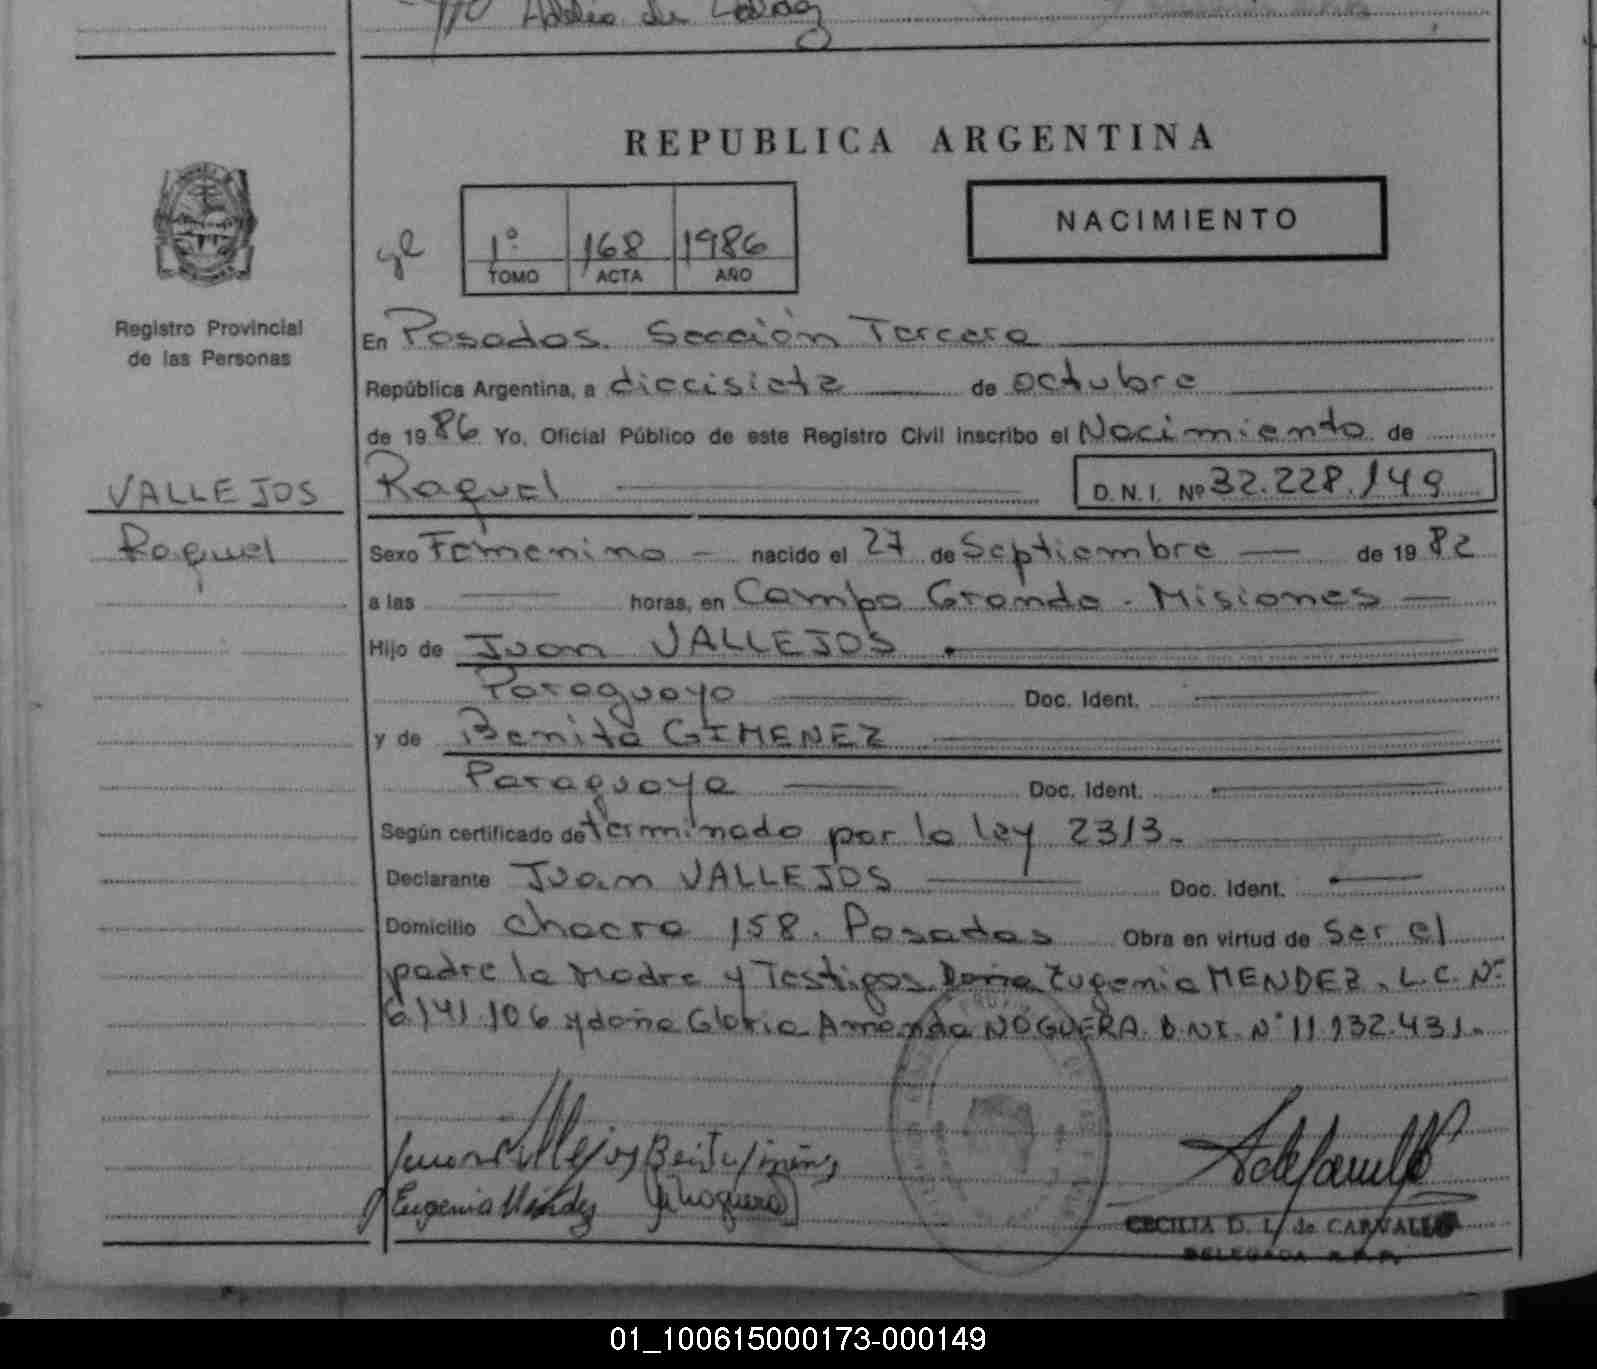 Adelio de
REPUBLICA ARGENTINA
NACIMIENTO
1° 168 1986
TOMO ACTA AÑO
Registro Provincial
de las Personas
En Posadas. Sección Tercera
República Argentina, a diecisiete de octubre
de 1986 Yo, Oficial Público de este Registro Civil inscribo el Nacimiento de
VALLEJOS
Raquel D.N.I. Nº 32.228.149
Raquel
Sexo Femenino - nacido el 27 de Septiembre de 1982
a las horas, en Campo Grande - Misiones
Hijo de Juan VALLEJOS
Paraguayo Doc. Ident.
y de Benita GIMENEZ
Paraguaya Doc. Ident.
Según certificado determinado por la ley 2313.
Declarante Juan VALLEJOS Doc. Ident.
Domicilio Chacra 158. Posadas Obra en virtud de Ser el
padre la Madre y Testigos Doña Eugenia MENDEZ. L.C. Nº
6.141.106 y doña Gloria Amanda NOGUERA D.N.I. N° 11.932.431.
Juan Vallejos
Eugenia Méndez Noguera
CECILIA D. L. de CARVALLO
DELEGADA R.P.P.
01_100615000173-000149